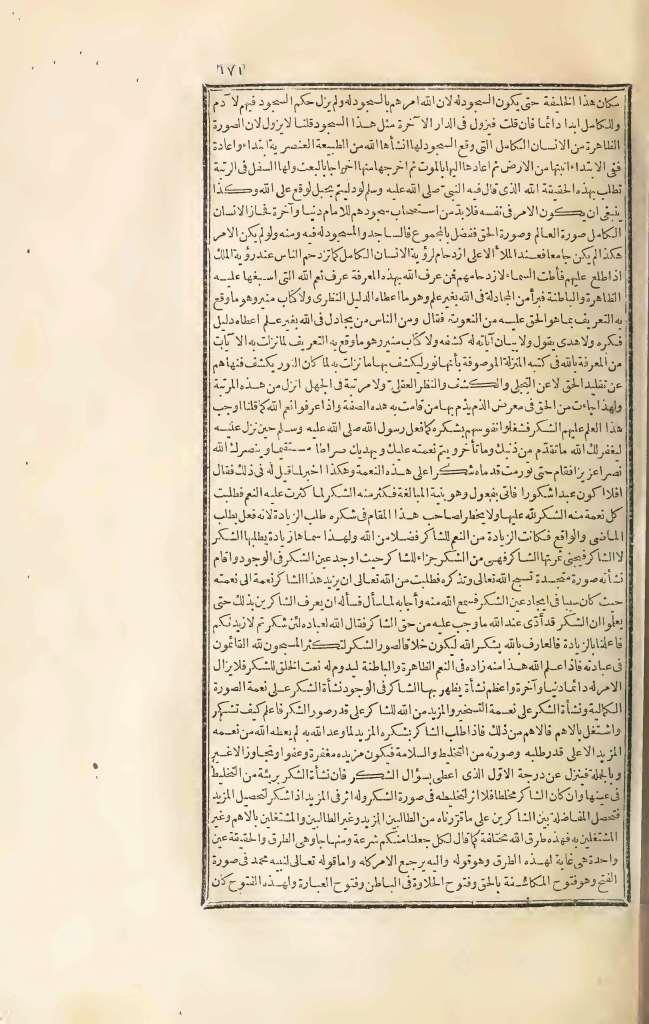 ٦٧١
سكان هذا الخليفة حتى يكون السجود له لان الله امرهم بالسجود له ولم يزل حكم السجود فيهم لآدم
وللكامل ابدا دائما فان قلت فيزول فى الدار الآخرة مثل هذا السجود قلنا لا يزول لان الصورة
الظاهرة من الانسان الكامل التى وقع السجود لها انشأها الله من الطبيعة العنصرية ابتداء واعادة
ففى الابتداء انبتها من الارض ثم اعادها اليها بالموت ثم اخرجها منها اخراجا بالبعث ولها السفل فى الرتبة
تطلب بهذه الحقيقة الله الذى قال فيه النبى صلى الله عليه وسلم لو دليتم بحبل لوقع على الله وكذا
ينبغى ان يكون الامر فى نفسه فلا بد من استصحاب سجودهم للامام دنيا وآخرة فحاز الانسان
الكامل صورة العالم وصورة الحق ففضل بالمجموع فالساجد والمسجود له فيه ومنه ولو لم يكن الامر
هكذا لم يكن جامعا فعند الملأ الاعلى ازدحام لرؤية الانسان الكامل كما تزدحم الناس عند رؤية الملك
اذا طلع عليهم فأطت السماء لازدحامهم فمن عرف الله بهذه المعرفة عرف نعم الله التى اسبغها عليه
الظاهرة والباطنة فبرأ من المجادلة فى الله بغير علم وهو ما اعطاه الدليل النظرى ولا كتاب منير وهو ما وقع
به التعريف بما هو الحق عليه من النعوت فقال ومن الناس من يجادل فى الله بغير علم اعطاه دليل
فكره ولا هدى يقول ولا بيان آياته له كشفه ولا كتاب منير وهو ما وقع به التعريف لما نزلت به الآيات
من المعرفة بالله فى كتبه المنزلة الموصوفة بأنها نور ليكشف بها ما نزلت به لما كان النور يكشف فنهاهم
عن تقليد الحق لا عن التجلى والكشف والنظر العقلى ولا مرتبة فى الجهل انزل من هذه المرتبة
ولهذا جاءت من الحق فى معرض الذم يذم بها من قامت به هذه الصفة واذا عرفوا نعم الله كما قلنا اوجب
هذا العلم عليهم الشكر فشغلوا نفوسهم بشكره كما فعل رسول الله صلى الله عليه وسلم حين نزل عليه
ليغفر لك الله ما تقدم من ذنبك وما تأخر ويتم نعمته عليك ويهديك صراطا مستقيما وينصرك الله
نصرا عزيزا فقام حتى تورمت قدماه شكرا على هذه النعمة وهكذا اخبر لما قيل له فى ذلك فقال
افلا اكون عبدا شكورا فأتى بفعول وهو بنية المبالغة فكثر منه الشكر لما كثرت عليه النعم فطلبت
كل نعمة منه الشكر لله عليها ولا يخطر لصاحب هذا المقام فى شكره طلب الزيادة لانه فعل يطلب
الماضى والواقع فكانت الزيادة من النعم للشاكر فضلا من الله ولهذا سماها زيادة يطلبها الشكر
لا الشاكر فيجنى ثمرتها الشاكر فهى من الشكر جزاء للشاكر حيث اوجد عين الشكر فى الوجود واقام
نشأته صورة متجسدة تسبح الله تعالى وتذكره فطلبت من الله تعالى ان يزيد هذا الشاكر نعمة الى نعمته
حيث كان سببا فى ايجاد عين الشكر فسمع الله منه وأجابه لما سأل فسأله ان يعرف الشاكرين بذلك حتى
يعلموا ان الشكر قد أدى عند الله ما وجب عليه من حق الشاكر فقال الله لعباده لئن شكرتم لازيدنكم
فاعلمنا بالزيادة فالعارف بالله يشكر الله ليكون خلاقا لصور الشكر لتكثر المسبحون لله القائمون
فى عبادته فاذا علم الله هذا منه زاده فى النعم الظاهرة والباطنة ليدوم له نعت الخلق للشكر فلا يزال
الامر له دائما دنيا وآخرة واعظم نشأة يظهر بها الشاكر فى الوجود نشأة الشكر على نعمة الصورة
الكمالية ونشأة الشكر على نعمة التسخير والمزيد من الله للشاكر على قدر صور الشكر فاعلم كيف تشكر
واشتغل بالاهم فالاهم من ذلك فاذا طلب الشاكر بشكره المزيد لما وعد الله به لم يعطه الله من نعمه
المزيد الا على قدر طلبه وصورته من التخليط والسلامة فيكون مزيده مغفرة وعفوا وتجاوزا لا غير
وبالجملة فينزل عن درجة الاول الذى اعطى بسؤال الشكر فان نشأة الشكر بريئة من التخليط
فى عينها وان كان الشاكر مخلطا فلا اثر لتخليطه فى صورة الشكر وله اثر فى المزيد اذا شكر لتحصيل المزيد
فتحصل المفاضلة بين الشاكرين على ما قررناه من الطالبين المزيد وغير الطالبين والمشتغلين بالاهم وغير
المشتغلين به فهذه طرق الله مختلفة كما قال لكل جعلنا منكم شرعة ومنهاجا وهى الطرق والحقيقة عين
واحدة هى غاية لهذه الطرق وهو قوله واليه يرجع الامر كله واما قوله تعالى لنبيه محمد فى صورة
الفتح وهو فتوح المكاشفة بالحق وفتوح الحلاوة فى الباطن وفتوح العبارة ولهذه الفتوح كان